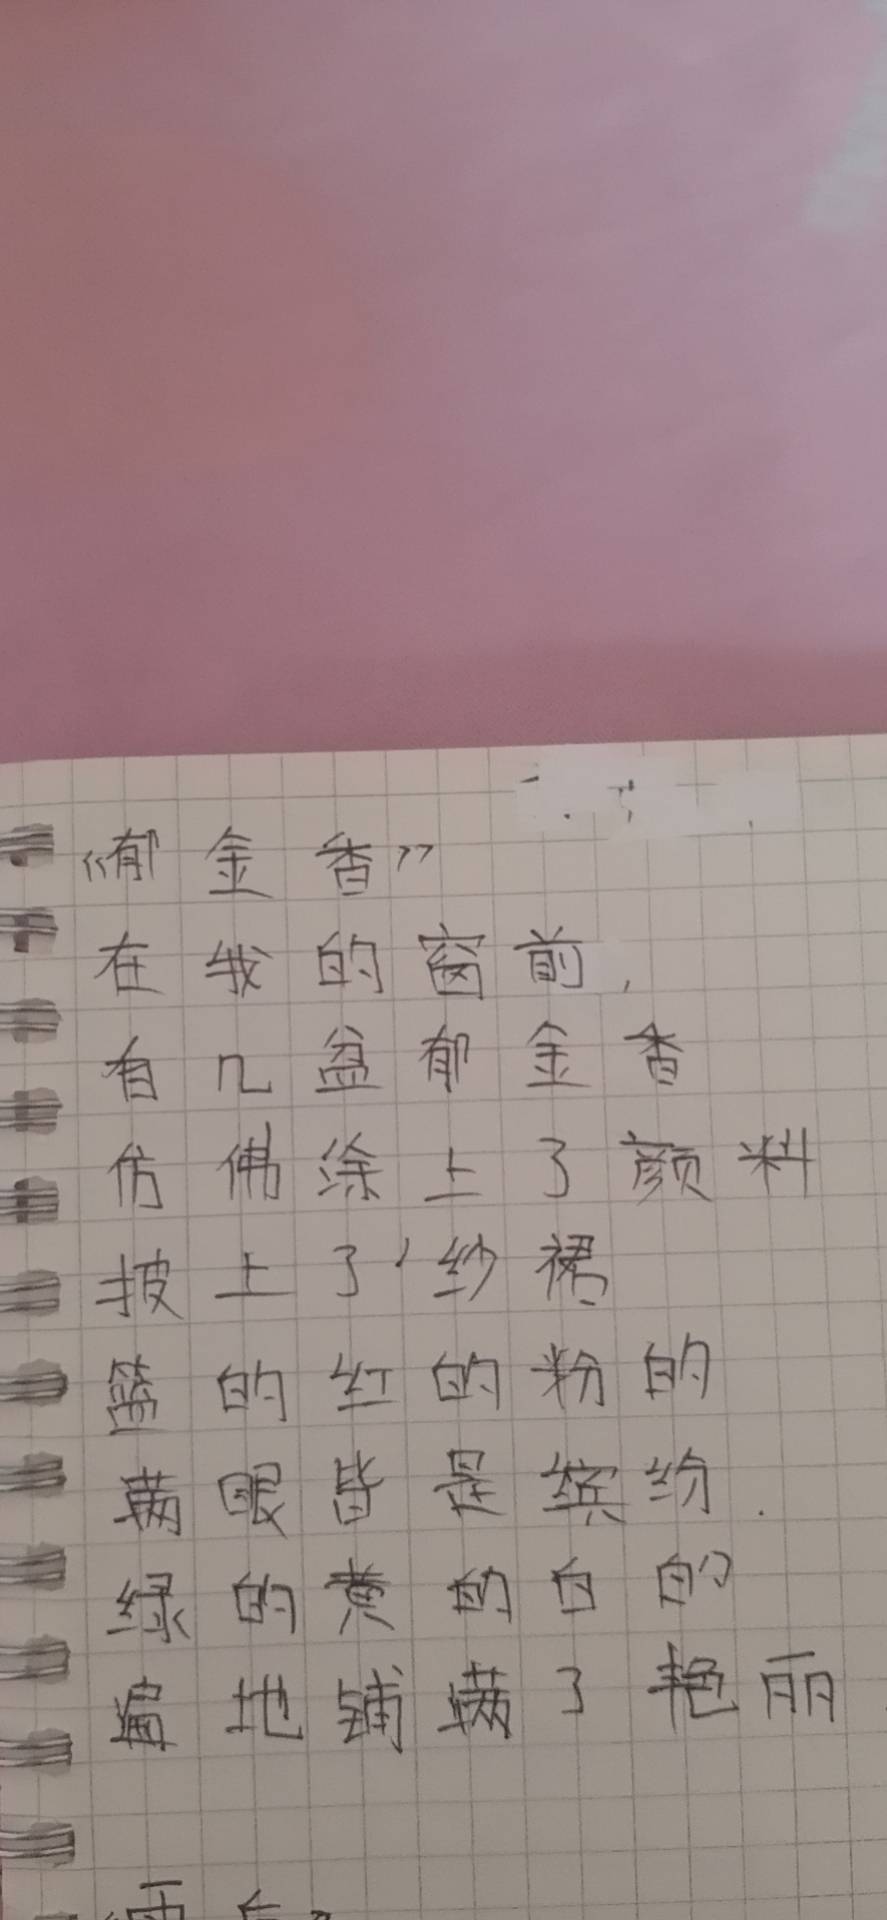 《郁金香》
在我的窗前,
有几盆郁金香
仿佛涂上了颜料
披上了纱裙
篮的红的粉的
满眼皆是缤纷.
绿的黄的白的
遍地铺满了艳丽